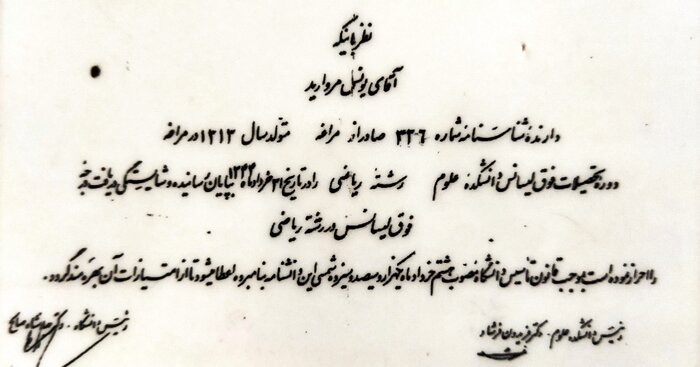 نظر باینکه
آقای یونس مروارید
دارندهٔ شناسنامه شماره ۳۲۰۶ صادر از مراغه متولد سال ۱۳۱۳ در مراغه
دوره تحصیلات فوق لیسانس دانشکده علوم رشته ریاضی را در تاریخ ۳۱ خرداد ماه ۱۳۴۴ بپایان رسانیده و شایستگی دریافت درجه
فوق لیسانس در رشته ریاضی
را احراز نموده است بموجب قانون تأسیس دانشگاه مصوب هشتم خرداد ماه یکهزار و سیصد و سیزده شمسی این دانشنامه بنامبرده اعطا میشود تا از امتیازات آن بهره مند گردد.
رئیس دانشکده علوم - دکتر فریدون فرشاد
رئیس دانشگاه - دکتر جهانشاه صالح